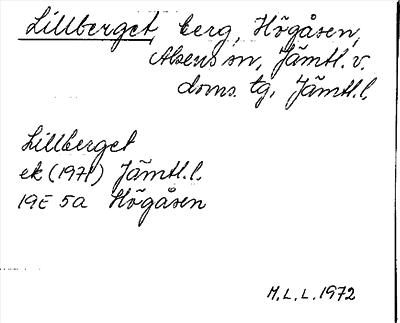 Lillberget, berg, Högåsen,
Alsens sn, Jämtl. v.
doms. tg, Jämtl. l.
Lillberget
ek (1971) Jämtl. l.
19E 5a Högåsen
M. L. L. 1972